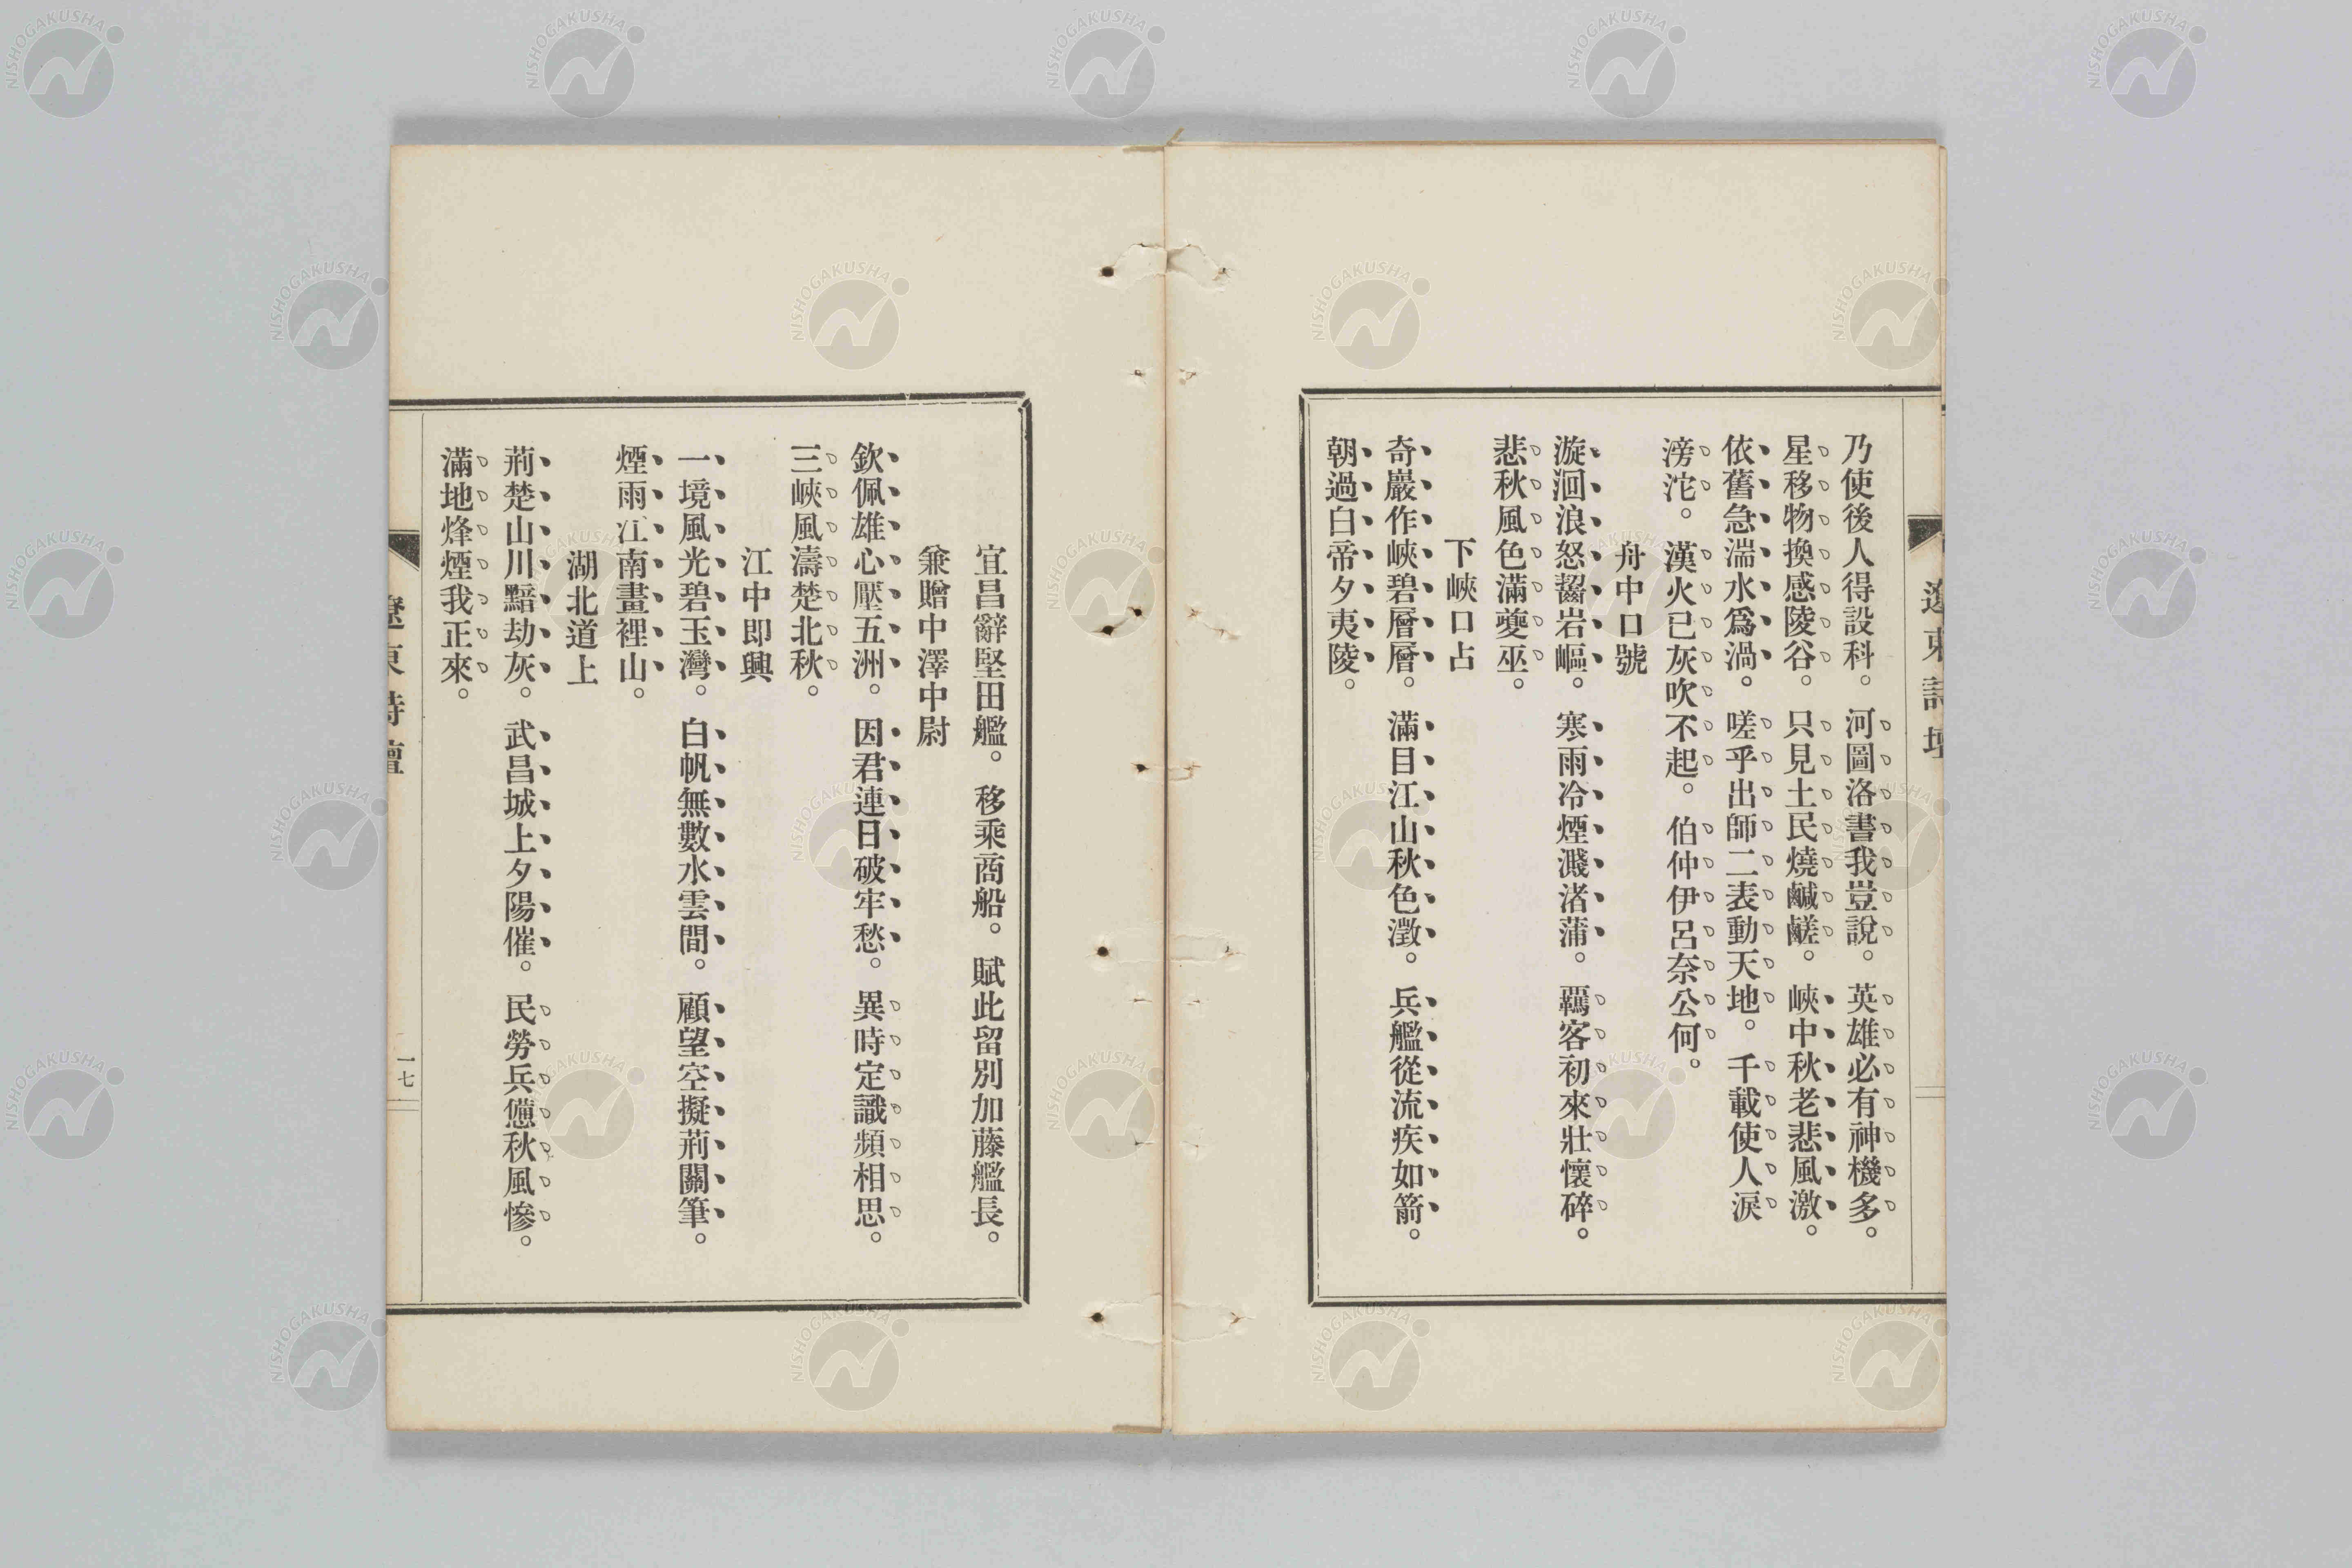 遼東詩壇
乃使後人得設科。河圖洛書我豈說。英雄必有神機多。
星移物換感陵谷。只見土民燒鹹鹺。峽中秋老悲風激。
依舊急湍水爲渦。嗟乎出師二表動天地。千載使人淚
滂沱。漢火已灰吹不起。伯仲伊呂奈公何。
舟中口號
漩洄浪怒齧岩嶇。寒雨冷煙濺渚蒲。羈客初來壯懷碎。
悲秋風色滿夔巫。
下峽口占
奇巖作峽碧層層。滿目江山秋色澂。兵艦從流疾如箭。
朝過白帝夕夷陵。
宜昌辭堅田艦。移乘商船。賦此留別加藤艦長。
兼贈中澤中尉
欽佩雄心壓五洲。因君連日破牢愁。異時定識頻相思。
三峽風濤楚北秋。
江中即興
一境風光碧玉灣。白帆無數水雲間。顧望空擬荊關筆。
煙雨江南畫裡山。
湖北道上
荊楚山川黯劫灰。武昌城上夕陽催。民勞兵憊秋風慘。
滿地烽煙我正來。
遼東詩壇
一七
NISHOGAKUSHA